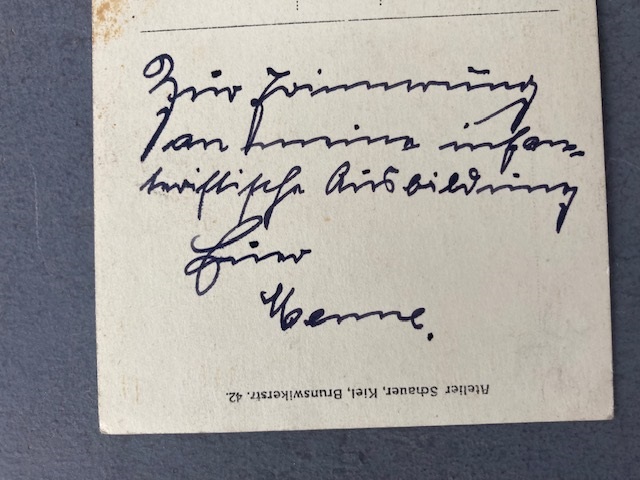 Zur Erinnerung
an meine infan-
teristische Ausbildung
Euer
Menne.
Atelier Schauer, Kiel, Brunswikerstr. 42.